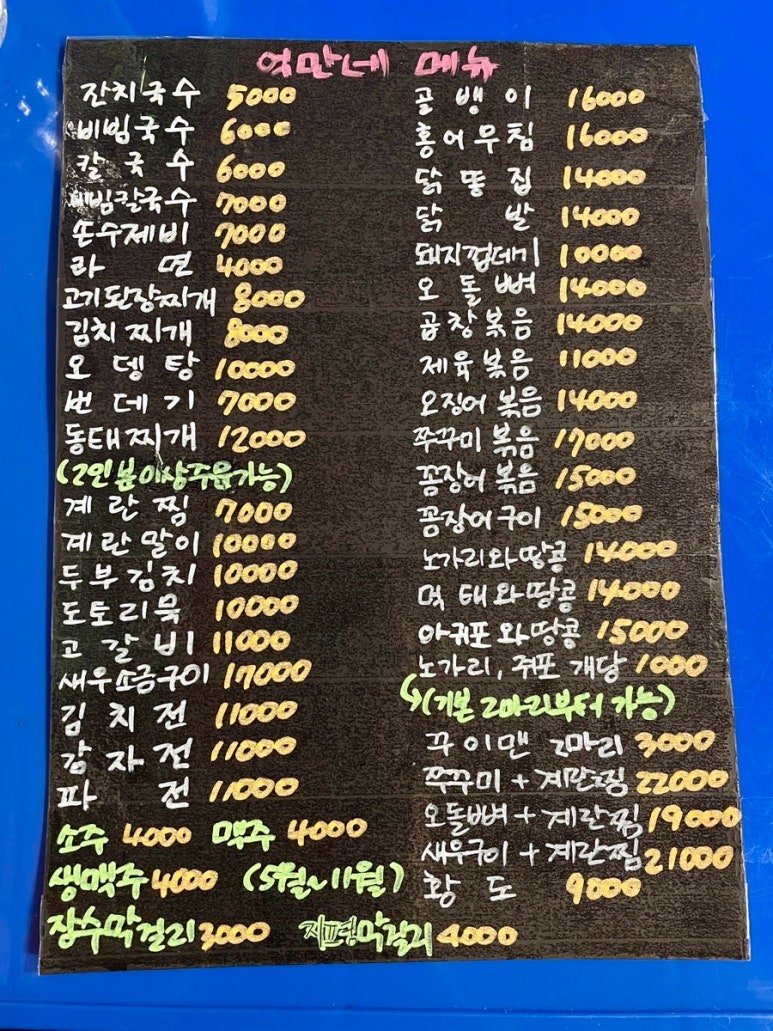 억만네 메뉴
잔치국수 5000
비빔국수 6000
칼국수 6000
비빔칼국수 7000
손수제비 7000
라면 4000
고기된장찌개 8000
김치찌개 8000
오뎅탕 10000
번데기 7000
동태찌개 12000
(2인분이상주문가능)
계란찜 7000
계란말이 10000
두부김치 10000
도토리묵 10000
고갈비 11000
새우소금구이 17000
김치전 11000
감자전 11000
파전 11000
소주 4000 맥주 4000
생맥주 4000 (5월~11월)
장수막걸리 3000 지평막걸리 4000
골뱅이 16000
홍어무침 16000
닭똥집 14000
닭발 14000
돼지껍데기 10000
오돌뼈 14000
곱창볶음 14000
제육볶음 11000
오징어볶음 14000
쭈꾸미볶음 17000
꼼장어볶음 15000
꼼장어구이 15000
노가리와땅콩 14000
먹태와땅콩 14000
아귀포와땅콩 15000
노가리, 쥐포 개당 1000
↳(기본 2마리부터 가능)
꾸이맨 2마리 3000
쭈꾸미+계란찜 22000
오돌뼈+계란찜 19000
새우구이+계란찜 21000
황도 9000